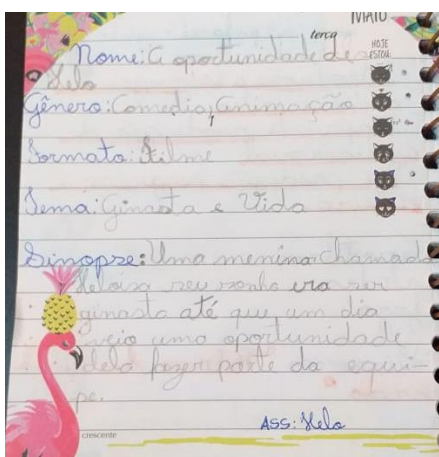 MAIO
terça
HOJE
ESTOU:
Nome: A oportunidade de
Helo
Gênero: Comedia, Animação
Formato: Filme
Tema: Ginasta e Vida
Sinopze: Uma menina chamada
Heloisa seu sonho era ser
ginasta até que um dia
veio uma oportunidade
dela fazer parte da equi-
pe.
Ass: Helo
crescente